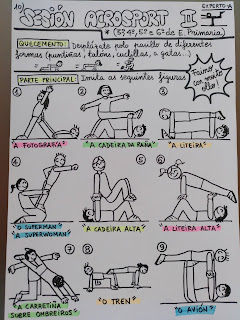 10)
SESIÓN ACROSPORT II
EXPERTO: A
* (5º 4º, 5º e 6º de E. Primaria)
QUECEMENTO: Desprázate polo pavillo de diferentes
formas (puntiñas, talóns, cuclillas, a gatas...)
PARTE PRINCIPAL: Imita as seguintes figuras
Faino con moito ollo!
① ② ③
"A FOTOGRAFÍA"
"A CADEIRA DA RAÍÑA"
"A LITEIRA"
④ ⑤ ⑥
"O SUPERMAN"
"A SUPERWOMAN"
"A CADEIRA ALTA"
"A LITEIRA ALTA"
⑦ ⑧ ⑨
"A CARRETIÑA
SOBRE OMBREIROS"
"O TREN"
"O AVIÓN"